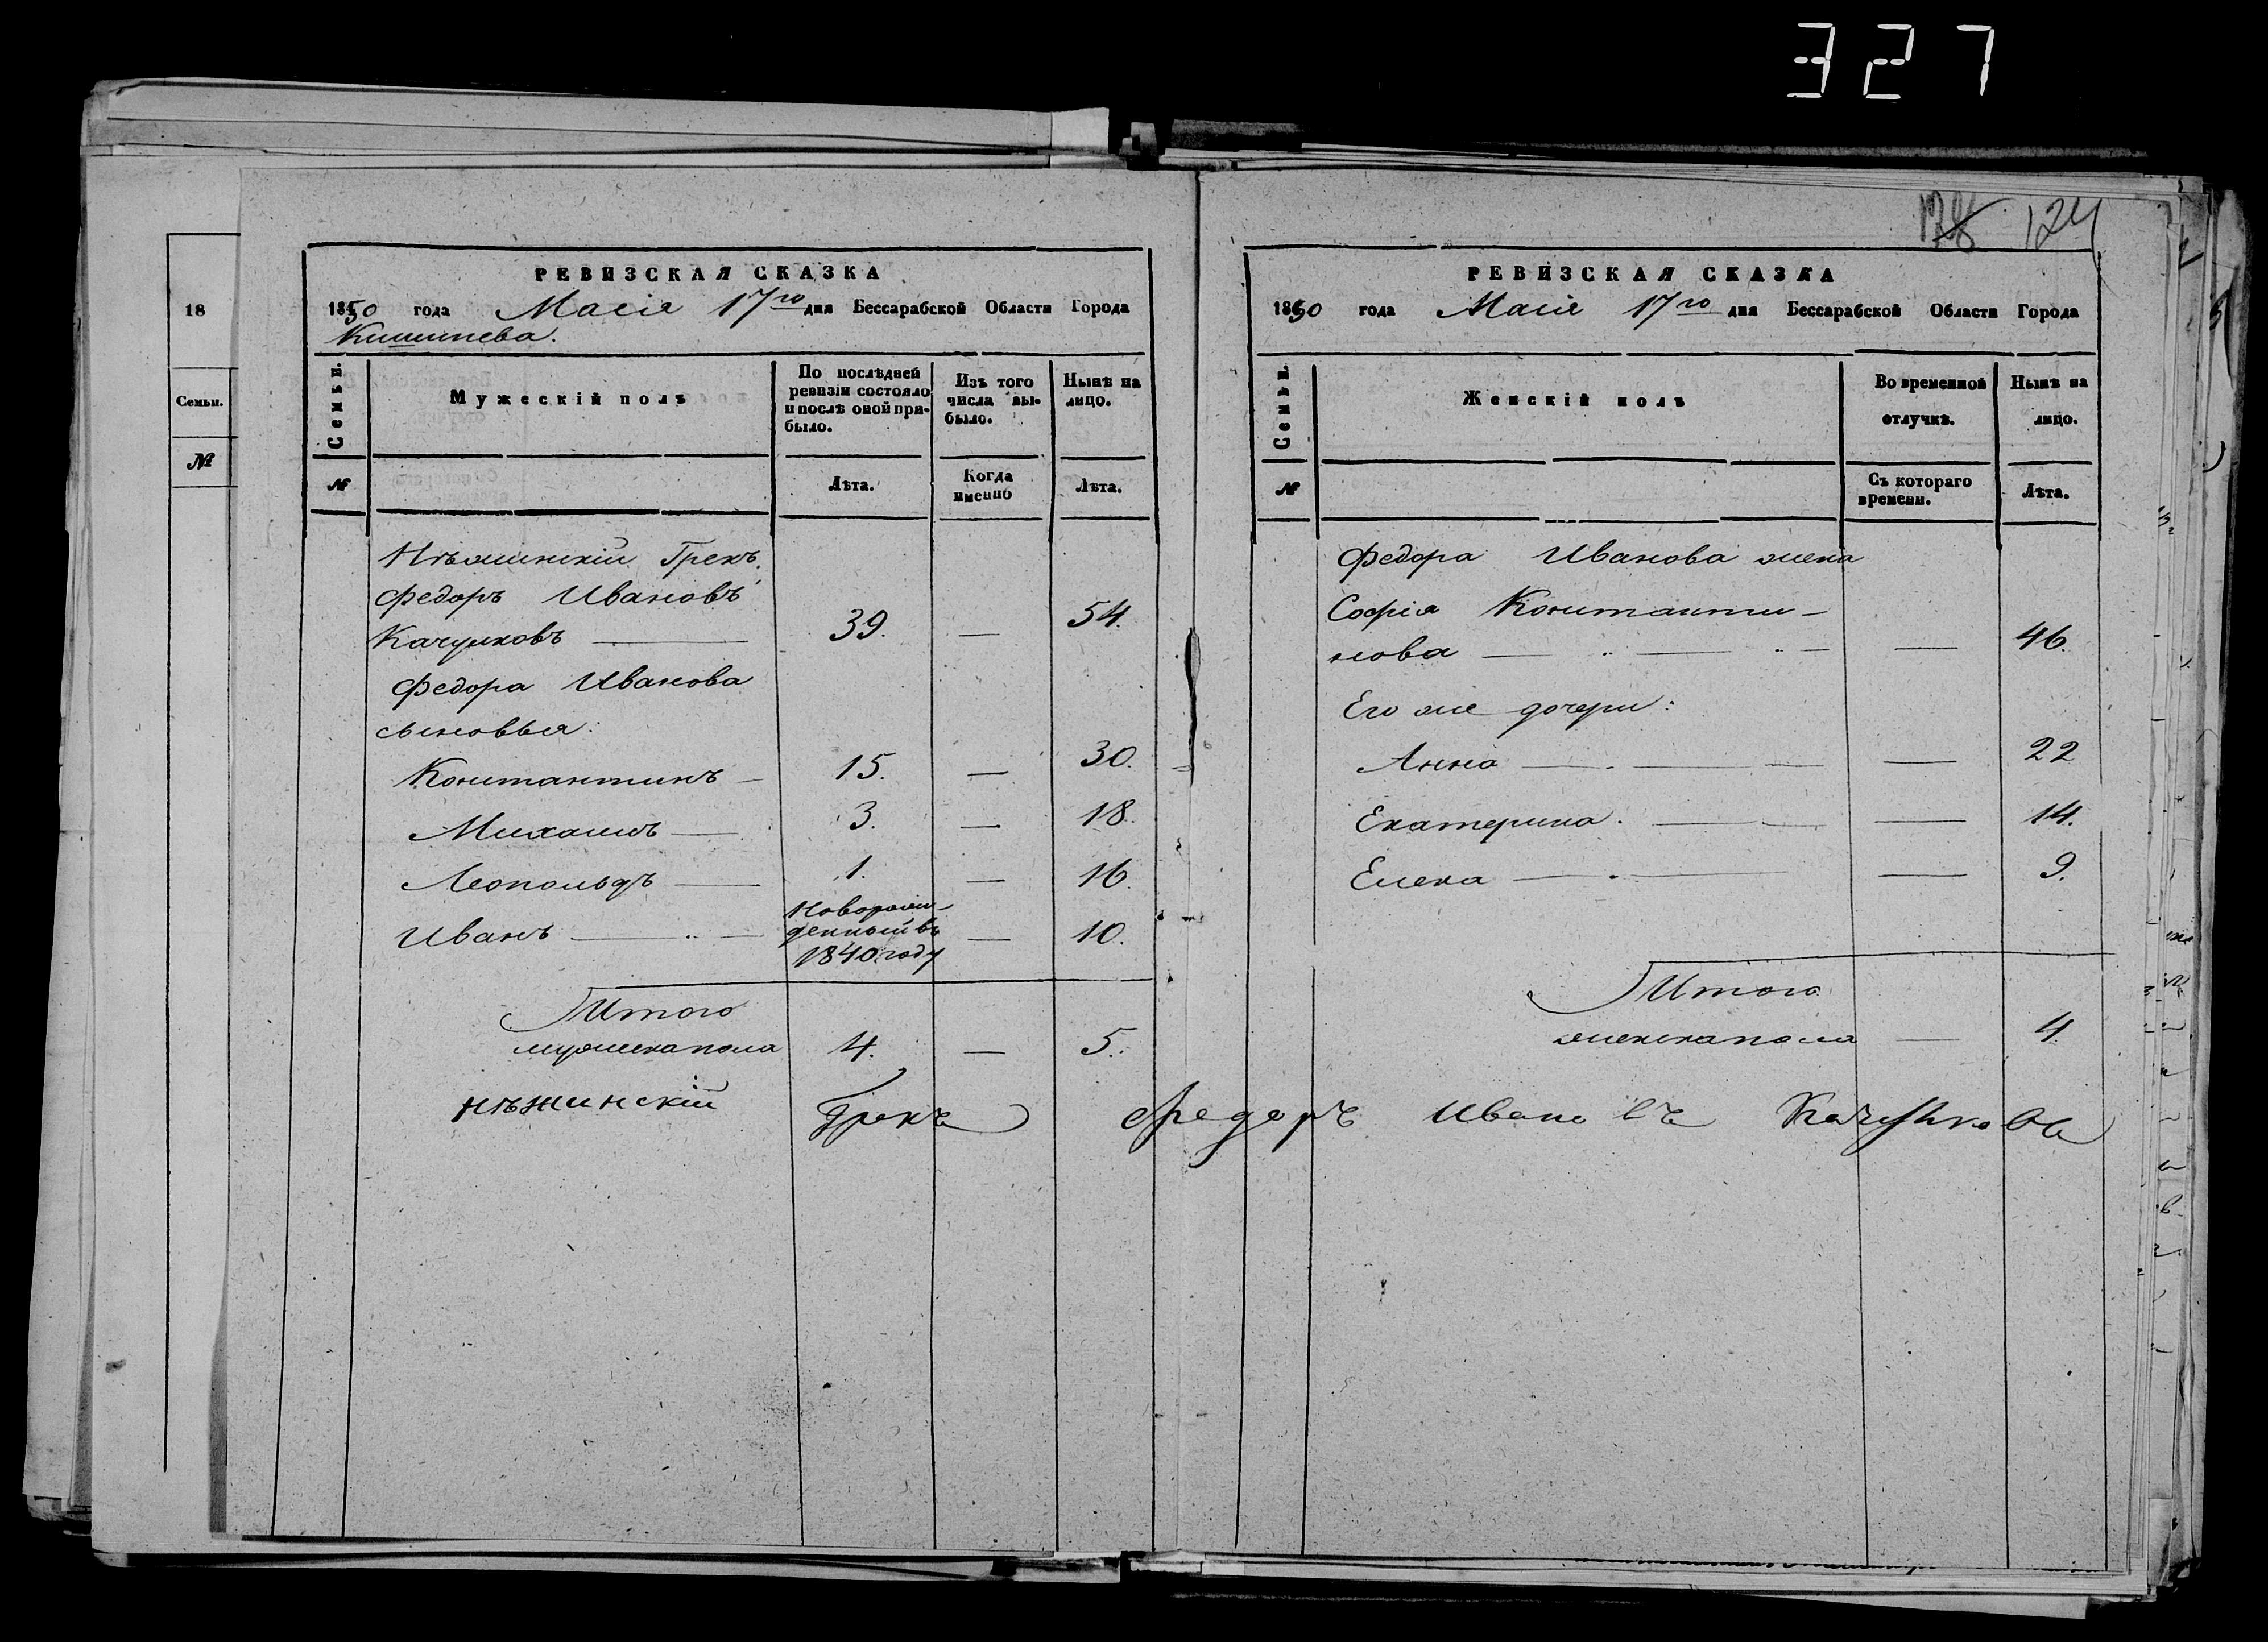 327
124
18
Семьи.
№
РЕВИЗСКАЯ СКАЗКА
1850 года Маія 17го дня Бессарабской Области Города
Кишинева.
Семьи.
Мужескій полъ
По послѣдней ревизіи состояло и послѣ оной прибыло.
Изъ того числа выбыло.
Нынѣ на лицо.
№
Лѣта.
Когда именно
Лѣта.
Нѣжинскій Грекъ,
Федоръ Ивановъ
Качулковъ — 39. — 54.
Федора Иванова
сыновья:
Константинъ — 15. — 30.
Михаилъ — 3. — 18.
Леопольдъ — 1. — 16.
Иванъ — Новорожденный въ 1840 году — 10.
Итого
мужеска пола 4. — 5.
РЕВИЗСКАЯ СКАЗКА
1850 года Маія 17го дня Бессарабской Области Города
Семьи.
Женскій полъ
Во временной отлучкѣ.
Нынѣ на лицо.
№
Съ котораго времени.
Лѣта.
Федора Иванова жена
Софія Константи-
нова — — 46.
Его же дочери:
Анна — — 22
Екатерина. — — 14.
Елена — — 9.
Итого
женска пола — 4.
Нѣжинскій Грекъ Федоръ Ивановъ